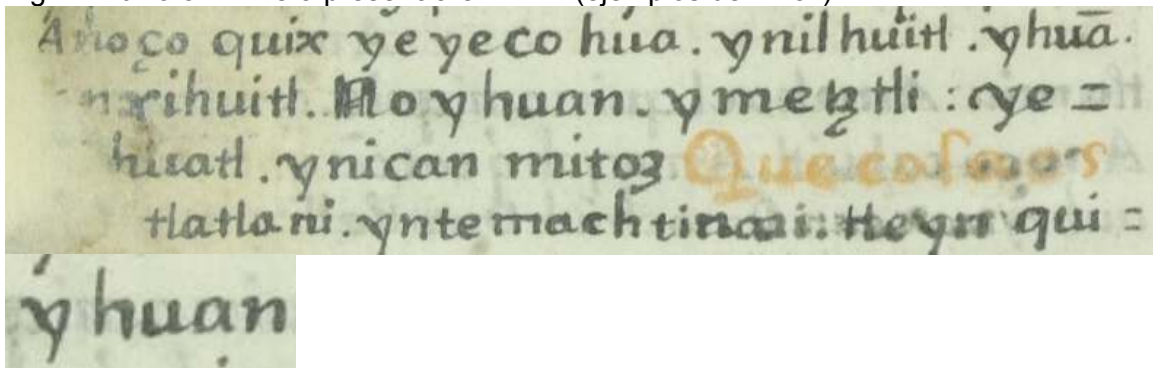 Anoço quix yeyeco hua. ynilhuitl. yhuā.
nxihuitl. No yhuan. ymeҍtli : ye =
huatl. ynican mitoz Que cosa es
tlatlani. yntemachtinani. tleyn qui =
yhuan